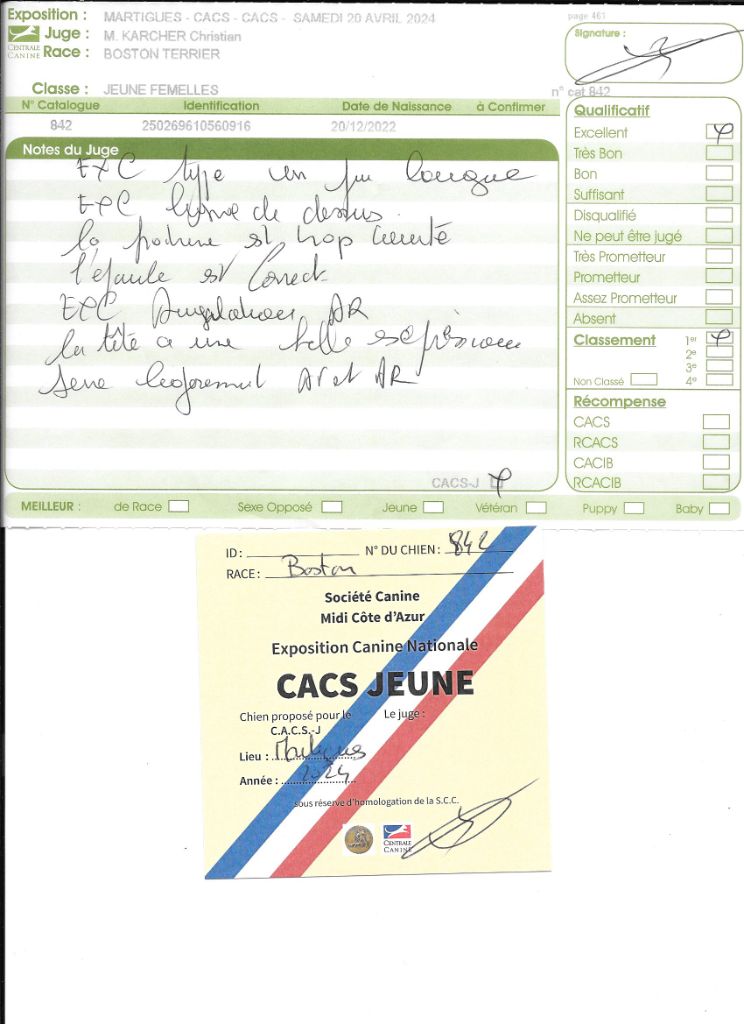 Exposition : MARTIGUES - CACS - CACS - SAMEDI 20 AVRIL 2024
page 461
CENTRALE CANINE
Juge : M. KARCHER Christian
Race : BOSTON TERRIER
Signature :
Classe : JEUNE FEMELLES
n° cat 842
N° Catalogue Identification Date de Naissance à Confirmer
842 250269610560916 20/12/2022
Notes du Juge
EXC type un peu longue
EXC ligne de dessus
la poitrine est trop
l'épaule est Correct
EXC Angulations AR
la tête a une belle expression
AV et AR
CACS-J
Qualificatif
Excellent
Très Bon
Bon
Suffisant
Disqualifié
Ne peut être jugé
Très Prometteur
Prometteur
Assez Prometteur
Absent
Classement 1er
2e
3e
Non Classé 4e
Récompense
CACS
RCACS
CACIB
RCACIB
MEILLEUR : de Race Sexe Opposé Jeune Vétéran Puppy Baby
ID : N° DU CHIEN : 842
RACE : Boston
Société Canine
Midi Côte d'Azur
Exposition Canine Nationale
CACS JEUNE
Chien proposé pour le Le juge :
C.A.C.S.-J
Lieu : Martigues
Année : 2024
sous réserve d'homologation de la S.C.C.
CENTRALE
CANINE